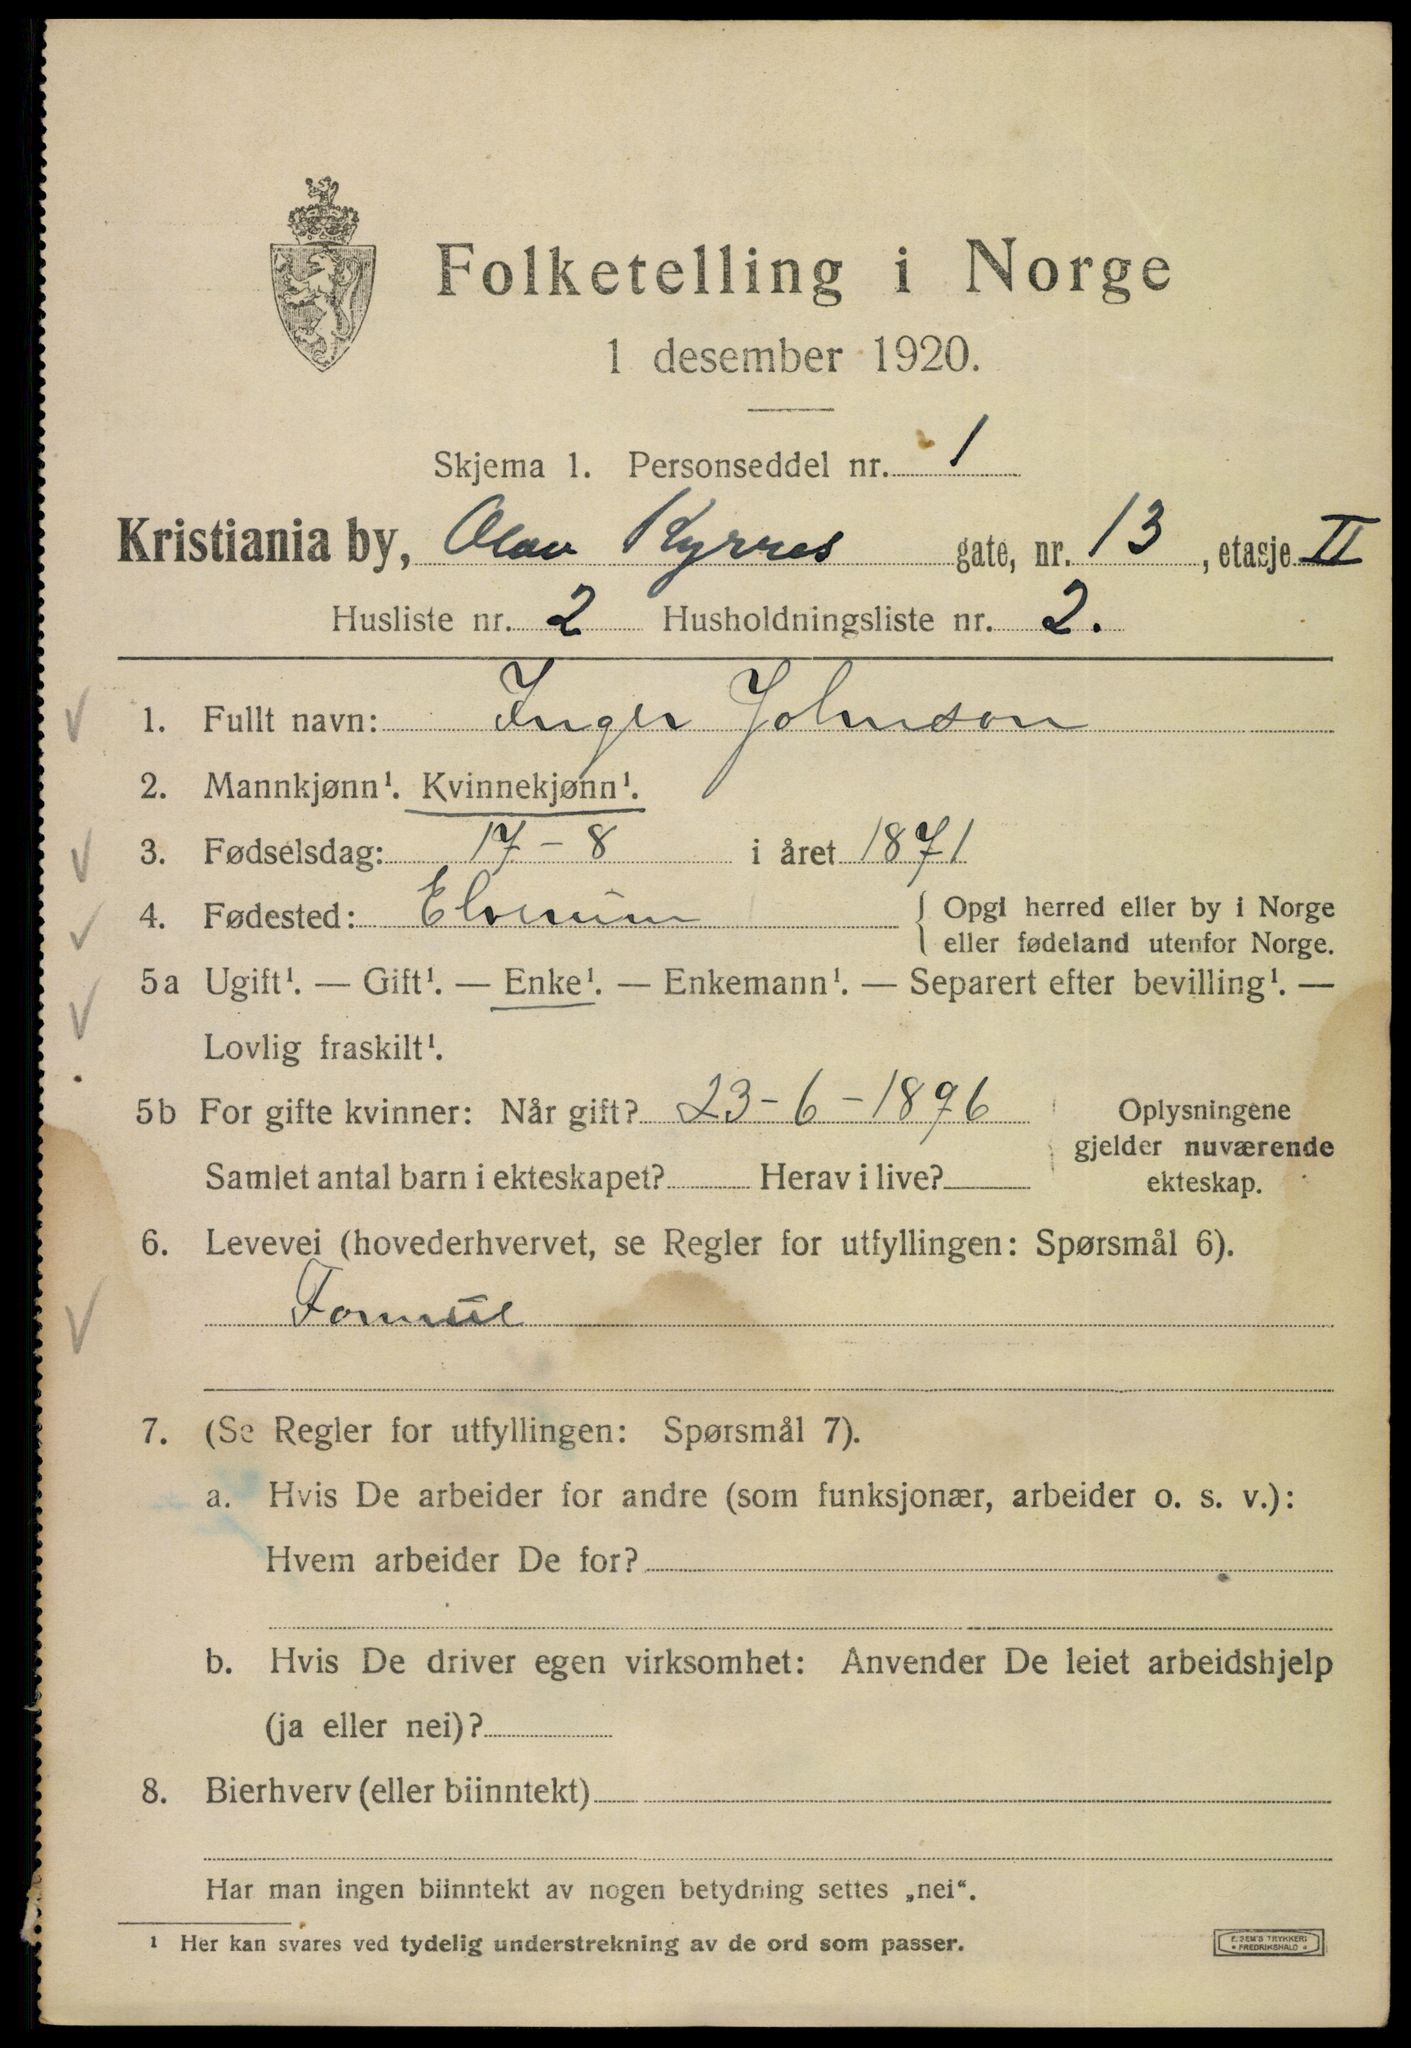 Folketelling i Norge
1 desember 1920.
Skjema 1. Personseddel nr. 1
Kristiania by, Olav Kyrres gate, nr. 13, etasje II
Husliste nr. 2 Husholdningsliste nr. 2.
1. Fullt navn: Inger Johnson
2. Mannkjønn¹. Kvinnekjønn¹.
3. Fødselsdag: 17-8 i året 1871
4. Fødested: Elverum { Opgi herred eller by i Norge
eller fødeland utenfor Norge.
5a Ugift¹. — Gift¹. — Enke¹. — Enkemann¹. — Separert efter bevilling¹. —
Lovlig fraskilt¹.
5b For gifte kvinner: Når gift? 23-6-1896 Oplysningene
gjelder nuværende
Samlet antal barn i ekteskapet? Herav i live? ekteskap.
6. Levevei (hovederhvervet, se Regler for utfyllingen: Spørsmål 6).
Formue
7. (Se Regler for utfyllingen: Spørsmål 7).
a. Hvis De arbeider for andre (som funksjonær, arbeider o. s. v.):
Hvem arbeider De for?
b. Hvis De driver egen virksomhet: Anvender De leiet arbeidshjelp
(ja eller nei)?
8. Bierhverv (eller biinntekt)
Har man ingen biinntekt av nogen betydning settes „nei“.
¹ Her kan svares ved tydelig understrekning av de ord som passer.
E. SEM'S TRYKKERI
* FREDRIKSHALD *